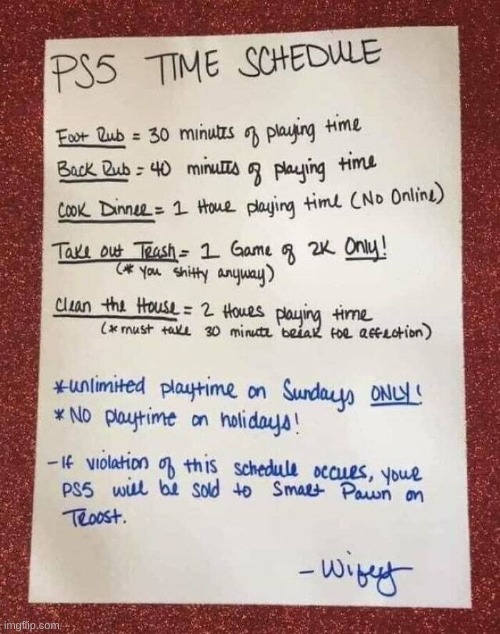 PS5 TIME SCHEDULE
Foot Rub = 30 minutes of playing time
Back Rub = 40 minutes of playing time
Cook Dinner = 1 Hour playing time (No Online)
Take out Trash = 1 Game of 2K Only!
(* you shitty anyway)
Clean the House = 2 Hours playing time
(* must take 30 minute break for affection)
*unlimited playtime on Sundays ONLY!
* NO playtime on holidays!
- If violation of this schedule occurs, your
PS5 will be sold to Smart Pawn on
Troost.
- Wifey
imgflip.com